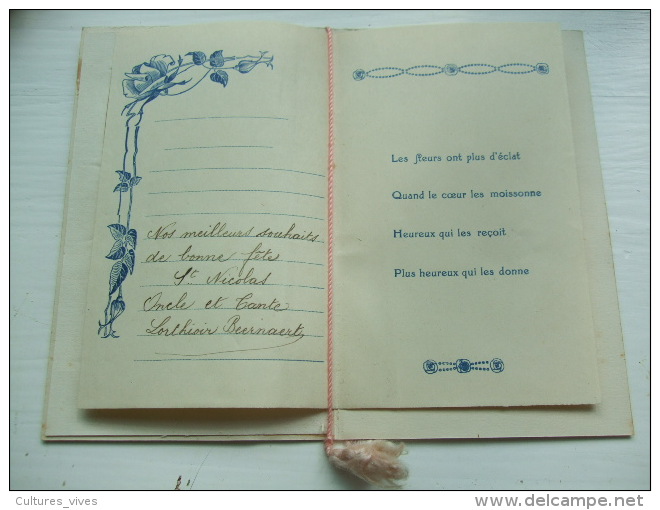 Nos meilleurs souhaits
de bonne fête
St Nicolas
Oncle et Tante
Lorthioir Beernaert
Les fleurs ont plus d'éclat
Quand le cœur les moissonne
Heureux qui les reçoit
Plus heureux qui les donne
Cultures_vives
delcampe.net